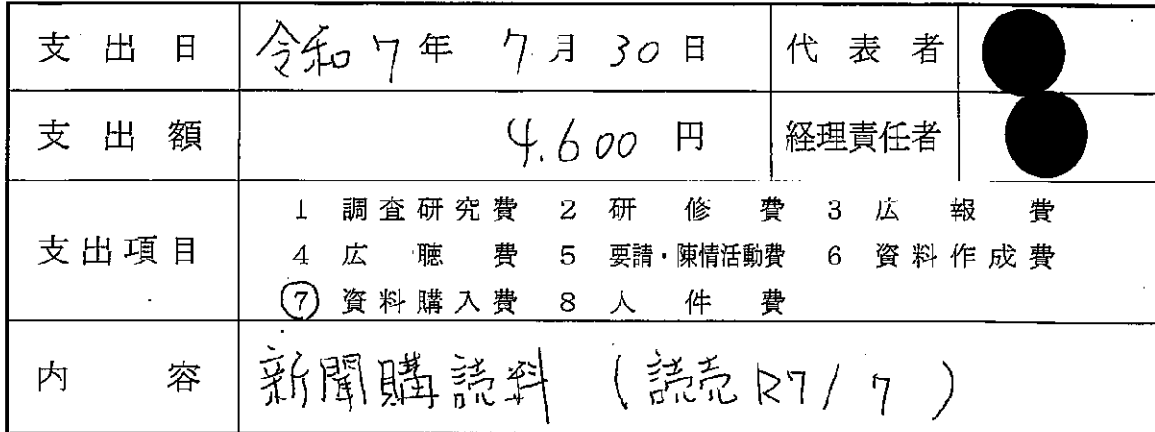 支出日 令和7年 7月30日 代表者
支出額 4.600円 経理責任者
支出項目 1 調査研究費 2 研修費 3 広報費
4 広聴費 5 要請・陳情活動費 6 資料作成費
⑦ 資料購入費 8 人件費
内容 新聞購読料 (読売R7/7)